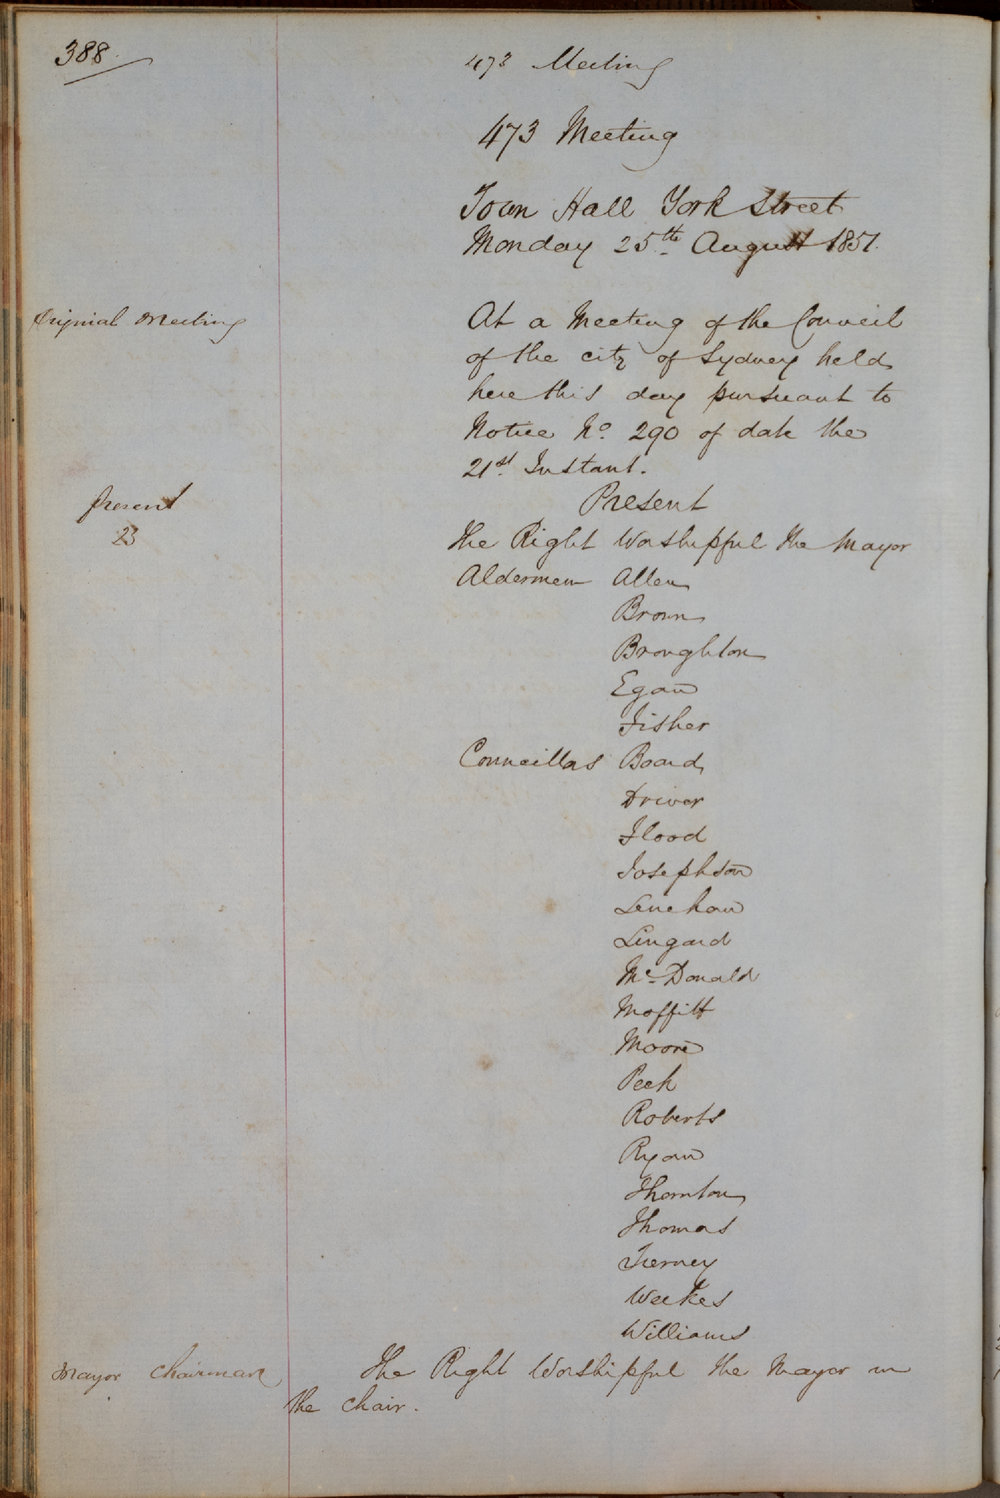 388
473 Meeting
473 Meeting
Town Hall York Street
Monday 25th August 1851.
Original Meeting
At a Meeting of the Council
of the city of Sydney held
here this day pursuant to
Notice No. 290 of date the
21st. Instant.
Present
23
Present
The Right Worshipful the Mayor
Aldermen Allen
Brown
Broughton
Egan
Fisher
Councillors Board
Driver
Flood
Josephson
Lenehan
Lingard
Mc. Donald
Moffitt
Moore
Peek
Roberts
Ryan
Thornton
Thomas
Tierney
Weekes
Williams
Mayor Chairman
The Right Worshipful the Mayor in
the chair.